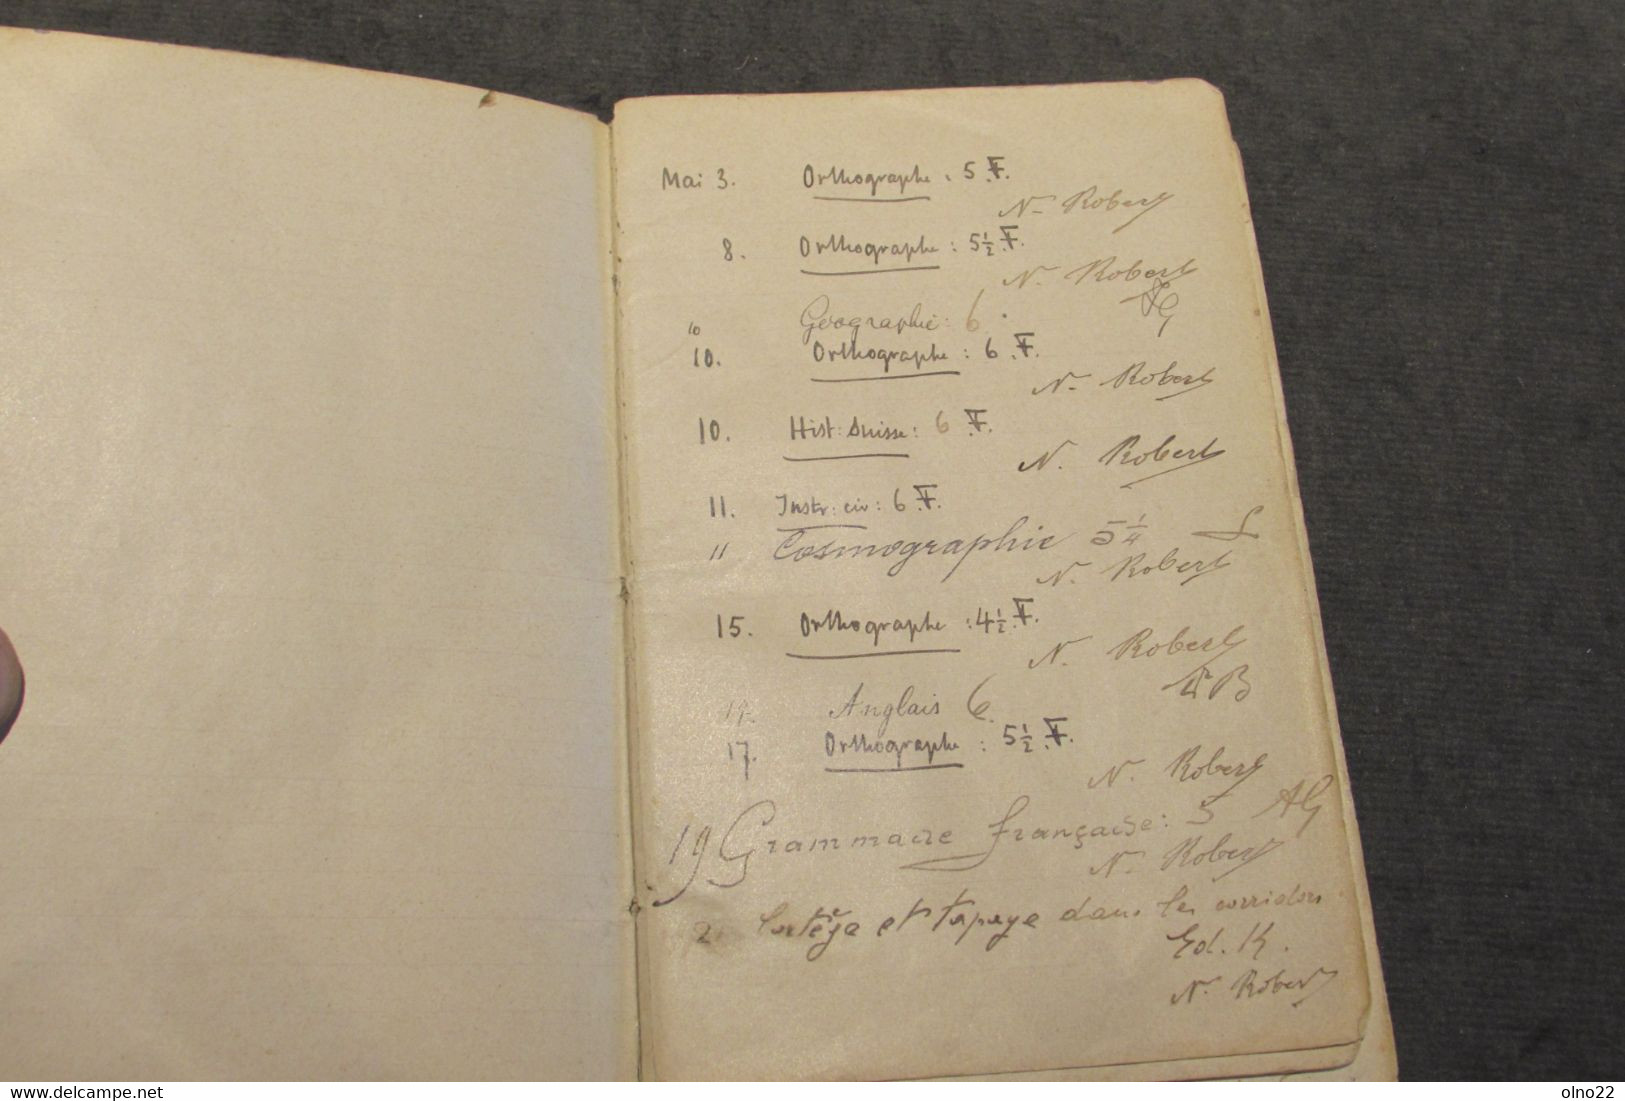 Mai 3. Orthographe : 5 F.
N. Robert
8. Orthographe : 5 1/2 F.
N. Robert
10 Géographie : 6
10. Orthographe : 6 F.
N. Robert
10. Hist: Suisse : 6 F.
N. Robert
11. Instr: civ : 6 F.
11 Cosmographie 5 1/4
N. Robert
15. Orthographe : 4 1/2 F.
N. Robert
Anglais 6
17. Orthographe : 5 1/2 F.
N. Robert
19 Grammaire française : 5 AG
N. Robert
Cortège et tapage dans les corridors
Ed. K.
N. Robert
www.delcampe.net
olno22